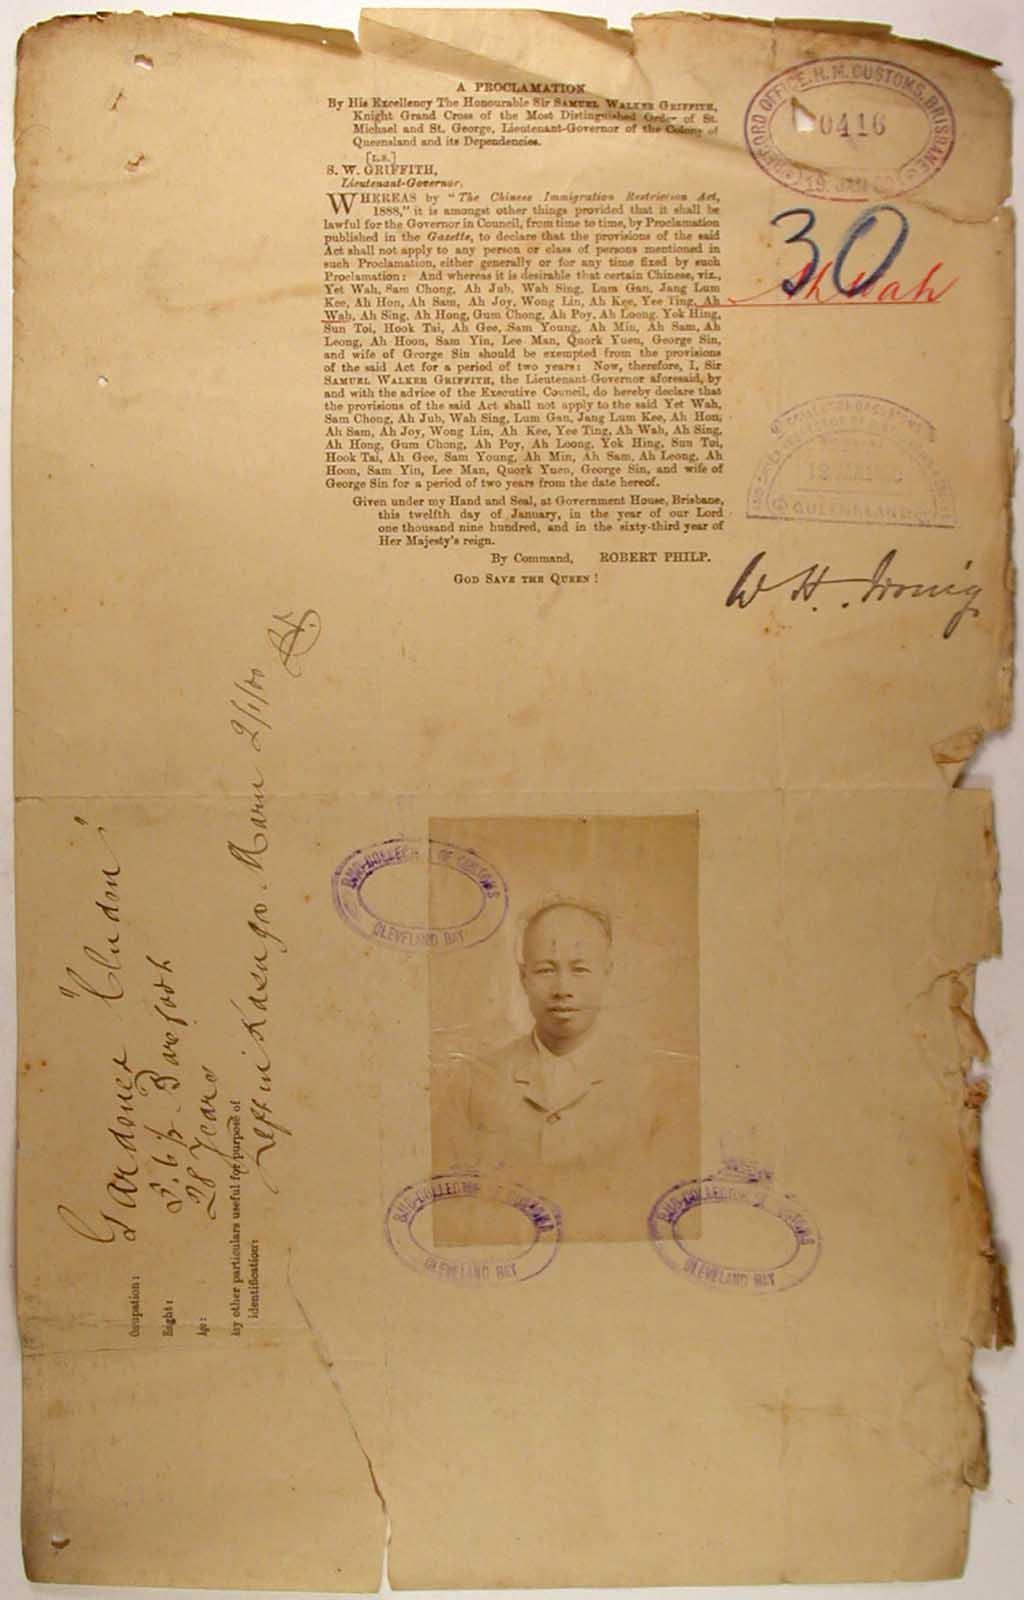 A PROCLAMATION
By His Excellency The Honourable Sir SAMUEL WALKER GRIFFITH,
Knight Grand Cross of the Most Distinguished Order of St.
Michael and St. George, Lieutenant-Governor of the Colony of
Queensland and its Dependencies.
[L.S.]
S. W. GRIFFITH,
Lieutenant-Governor.
WHEREAS by "The Chinese Immigration Restriction Act,
1888," it is amongst other things provided that it shall be
lawful for the Governor in Council, from time to time, by Proclamation
published in the Gazette, to declare that the provisions of the said
Act shall not apply to any person or class of persons mentioned in
such Proclamation, either generally or for any time fixed by such
Proclamation: And whereas it is desirable that certain Chinese, viz.,
Yet Wah, Sam Chong, Ah Jub, Wah Sing, Lum Gan, Jang Lum
Kee, Ah Hon, Ah Sam, Ah Joy, Wong Lin, Ah Kee, Yee Ting, Ah
Wah, Ah Sing, Ah Hong, Gum Chong, Ah Poy, Ah Loong, Yok Hing,
Sun Toi, Hook Tai, Ah Gee, Sam Young, Ah Min, Ah Sam, Ah
Leong, Ah Hoon, Sam Yin, Lee Man, Quork Yuen, George Sin,
and wife of George Sin should be exempted from the provisions
of the said Act for a period of two years: Now, therefore, I, Sir
SAMUEL WALKER GRIFFITH, the Lieutenant-Governor aforesaid, by
and with the advice of the Executive Council, do hereby declare that
the provisions of the said Act shall not apply to the said Yet Wah,
Sam Chong, Ah Jub, Wah Sing, Lum Gan, Jang Lum Kee, Ah Hon,
Ah Sam, Ah Joy, Wong Lin, Ah Kee, Yee Ting, Ah Wah, Ah Sing,
Ah Hong, Gum Chong, Ah Poy, Ah Loong, Yok Hing, Sun Toi,
Hook Tai, Ah Gee, Sam Young, Ah Min, Ah Sam, Ah Leong, Ah
Hoon, Sam Yin, Lee Man, Quork Yuen, George Sin, and wife of
George Sin for a period of two years from the date hereof.
Given under my Hand and Seal, at Government House, Brisbane,
this twelfth day of January, in the year of our Lord
one thousand nine hundred, and in the sixty-third year of
Her Majesty's reign.
By Command, ROBERT PHILP.
GOD SAVE THE QUEEN!
RECORD OFFICE. H. M. CUSTOMS, BRISBANE
0416
19 JAN
30
Ah Wah
COLLECTOR OF CUSTOMS
QUEENSLAND
W H. Irving
Occupation: Gardener "Cludon"
Height: 5. 6 1/2 Barefoot
Age: 28 Years
Any other particulars useful for purpose of
identification:
Left in Kasuga Maru 2/1/00
SUB-COLLECTOR OF CUSTOMS
CLEVELAND BAY
SUB-COLLECTOR OF CUSTOMS
CLEVELAND BAY
SUB-COLLECTOR OF CUSTOMS
CLEVELAND BAY